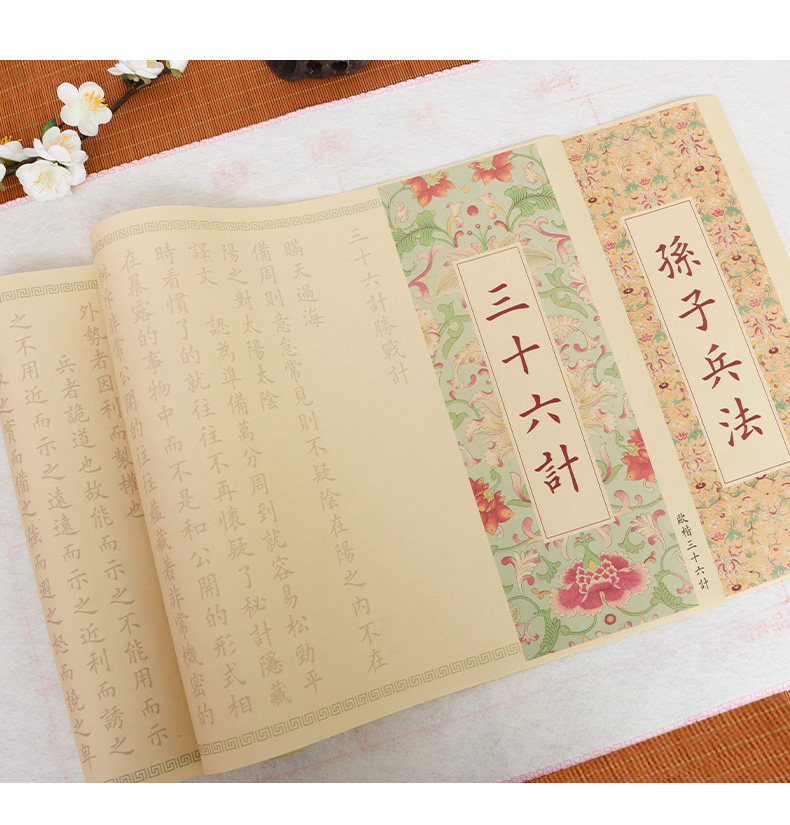 孫子兵法
三十六計
歐楷三十六計
三十六計勝戰計
瞞天過海
備周則意怠常見則不疑陰在陽之內不在
陽之對太陽太陰
譯文 認為準備萬分周到就容易松勁平
時看慣了的就往往不再懷疑了秘計隱藏
在暴露的事物中而不是和公開的形式相
非常公開的往往蘊藏着非常機密的
外勢者因利而製權也
兵者詭道也故能而示之不能用而示
之不用近而示之遠遠而示之近利而誘之
之實而備之強而避之怒而撓之卑